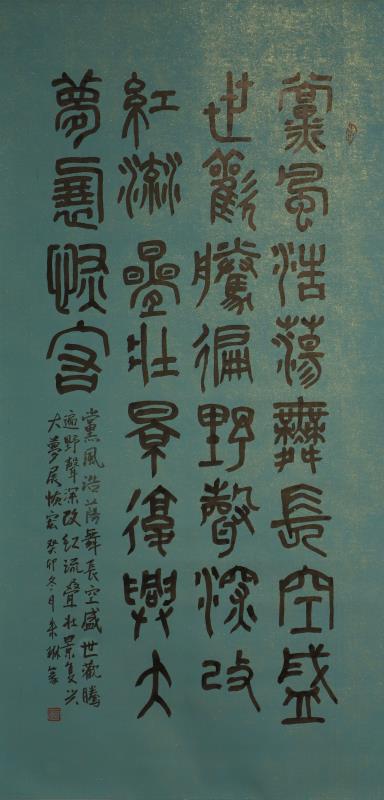 黨風浩蕩舞長空盛
世歡騰徧野聲深改
紅流疊壯景復興大
夢展恢宏
黨風浩蕩舞長空盛世歡騰
遍野聲深改紅流疊壯景复兴
大夢展恢宏癸卯冬月琳篆